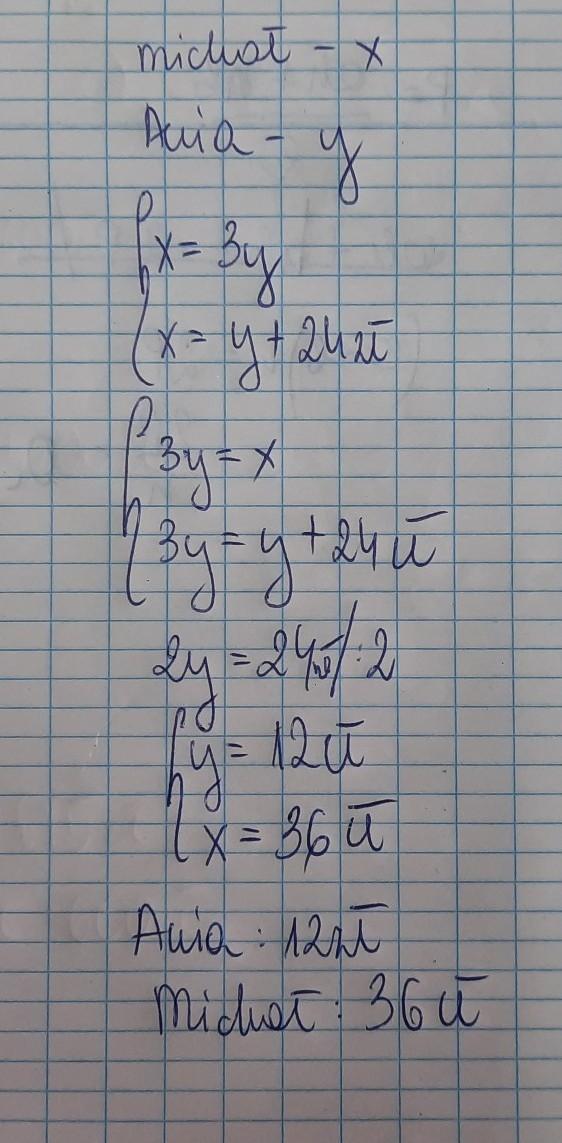 Michał - x
Ania - y
x = 3y
x = y + 24 zł
3y = x
3y = y + 24 zł
2y = 24 zł /: 2
y = 12 zł
x = 36 zł
Ania: 12 zł
Michał: 36 zł